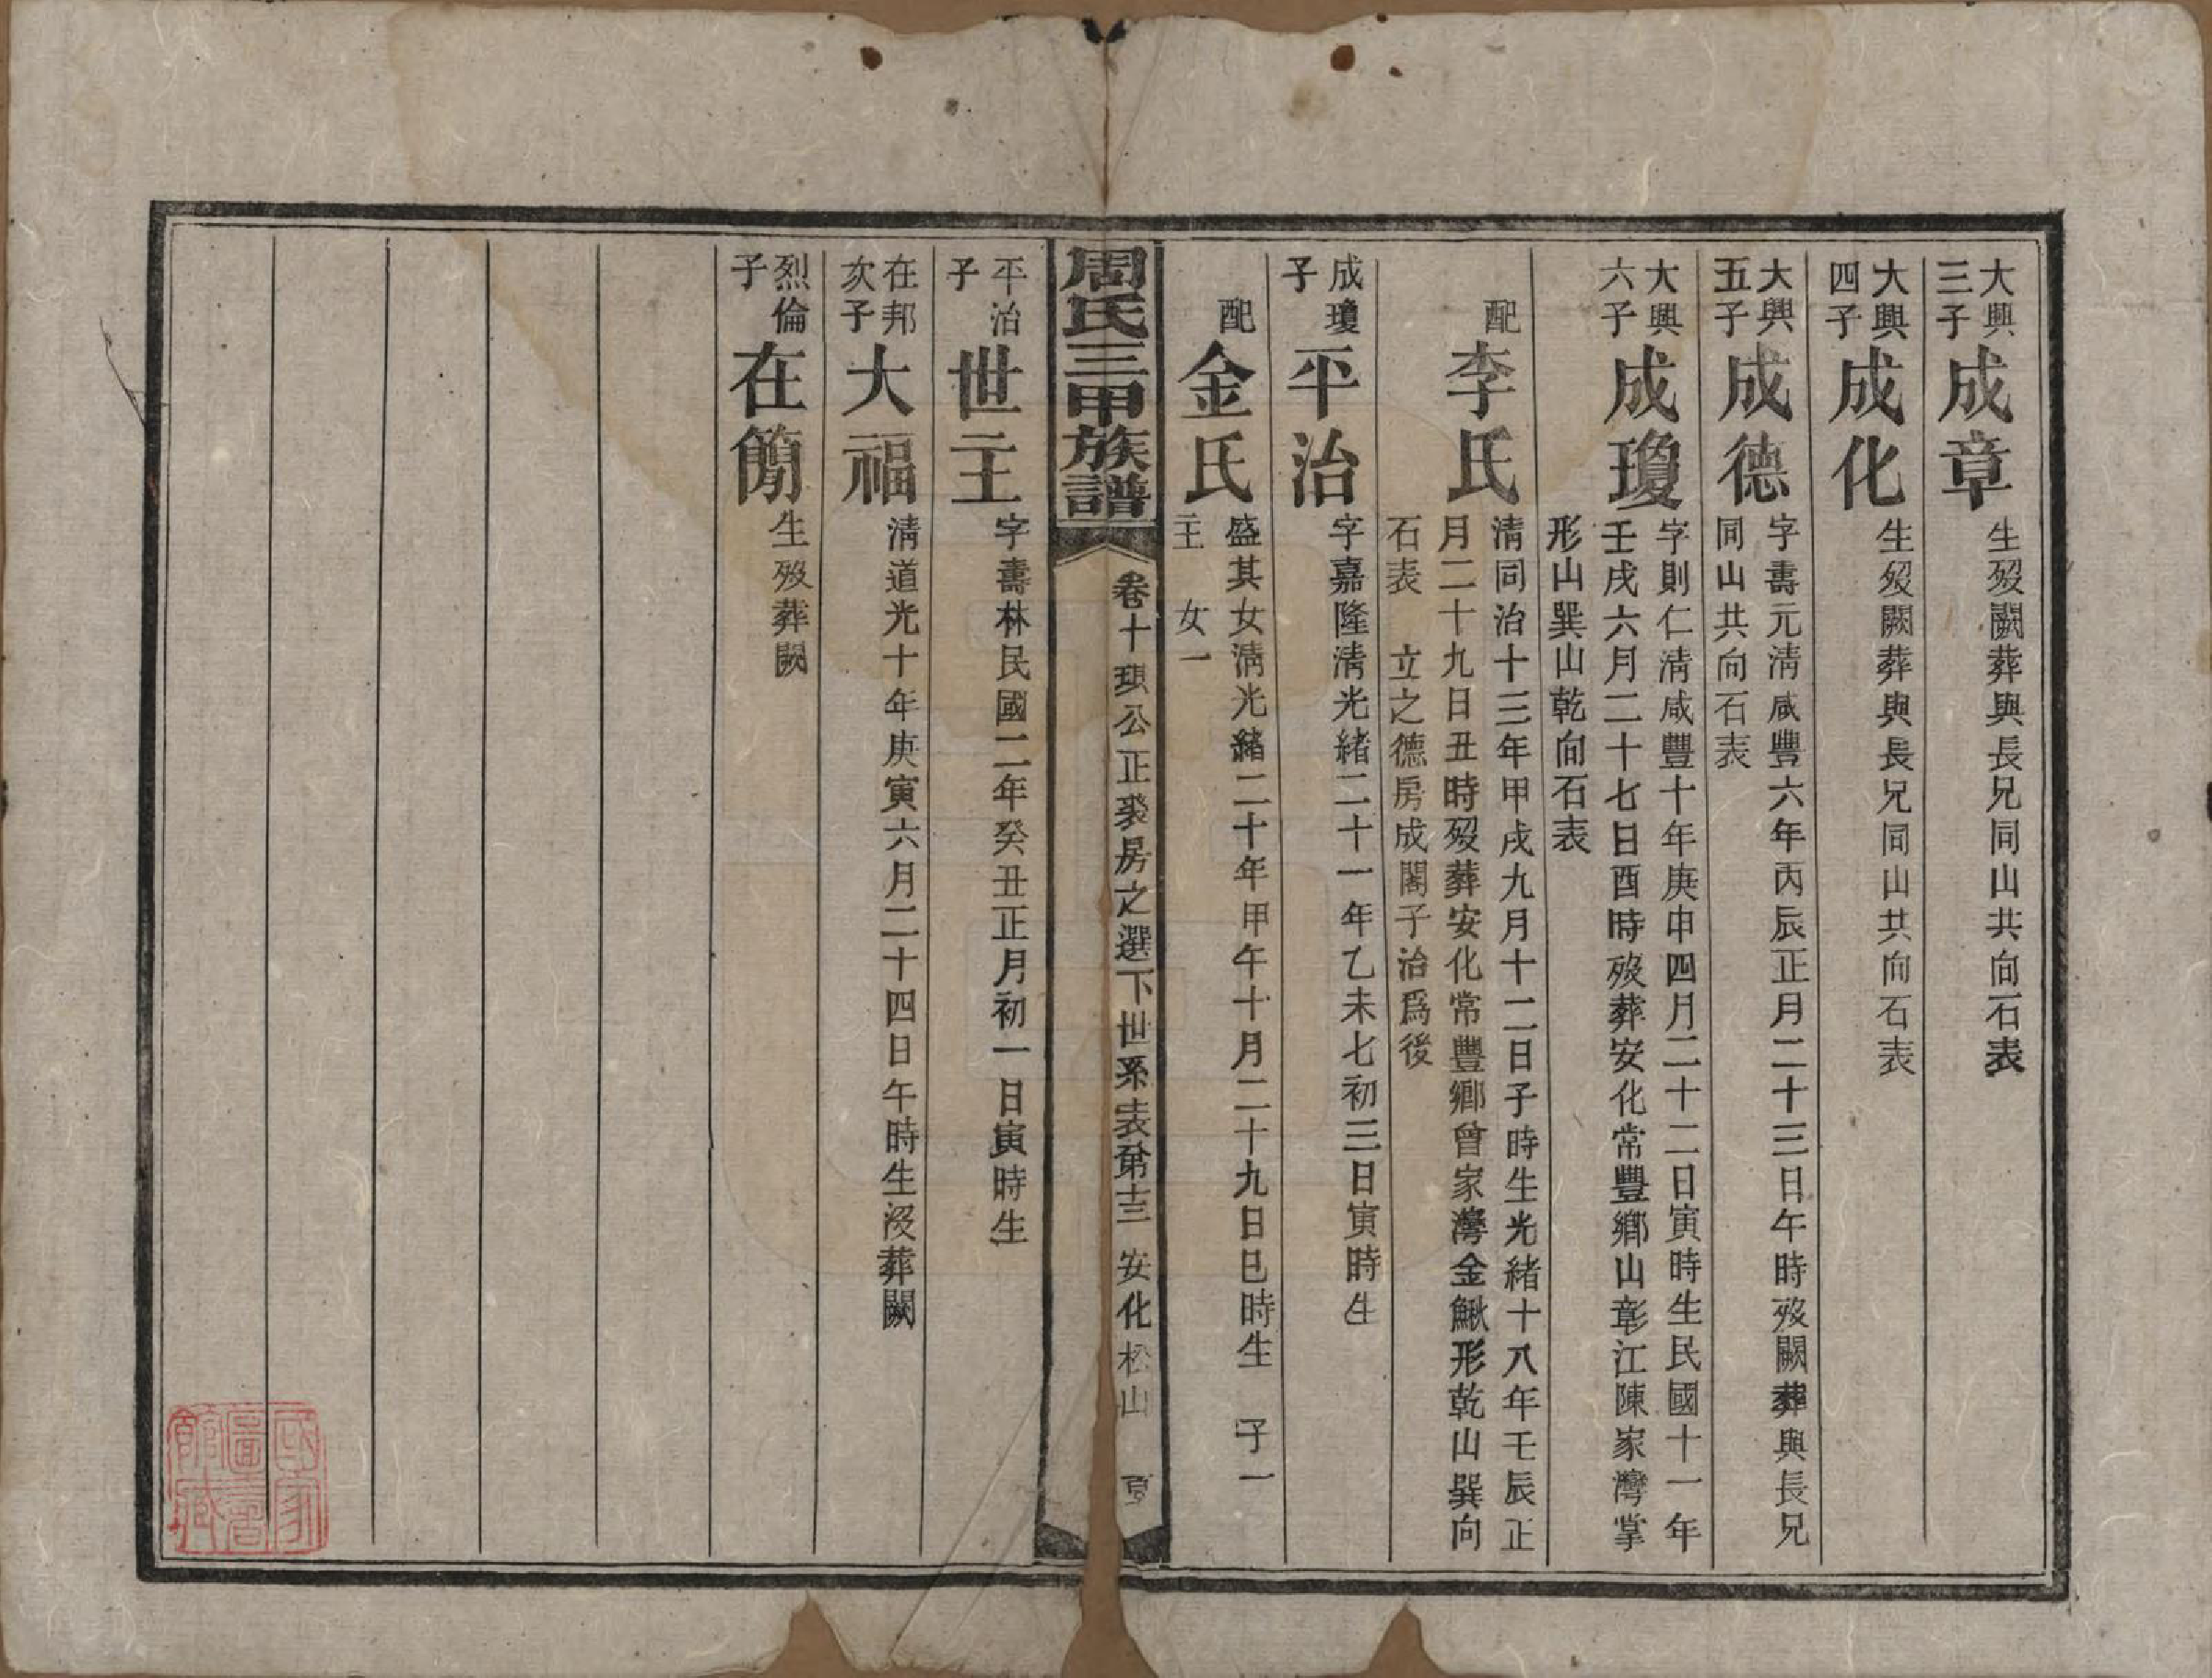 大興
三子
成章
生歿闕葬與長兄同山共向石表
大興
四子
成化
生歿闕葬與長兄同山共向石表
大興
五子
成德
字壽元淸咸豐六年丙辰正月二十三日午時歿闕葬與長兄
同山共向石表
大興
六子
成瓊
字則仁淸咸豐十年庚申四月二十二日寅時生民國十一年
壬戌六月二十七日酉時歿葬安化常豐鄉山彰江陳家灣掌
形山巽山乾向石表
配
李氏
淸同治十三年甲戌九月十二日子時生光緒十八年壬辰正
月二十九日丑時歿葬安化常豐鄉曾家灣金鰍形乾山巽向
石表 立之德房成閣子治爲後
成瓊
子
平治
字嘉隆淸光緒二十一年乙未七初三日寅時生
配
金氏
盛其女淸光緒二十年甲午十月二十九日巳時生 子一
主 女一
周氏三甲族譜
卷十 公正裘房之選下世系表第十三 安化松山
平治
子
世主
字壽林民國二年癸丑正月初一日寅時生
在邦
次子
大福
淸道光十年庚寅六月二十四日午時生沒葬闕
烈倫
子
在簡
生歿葬闕
國家
圖書
館藏